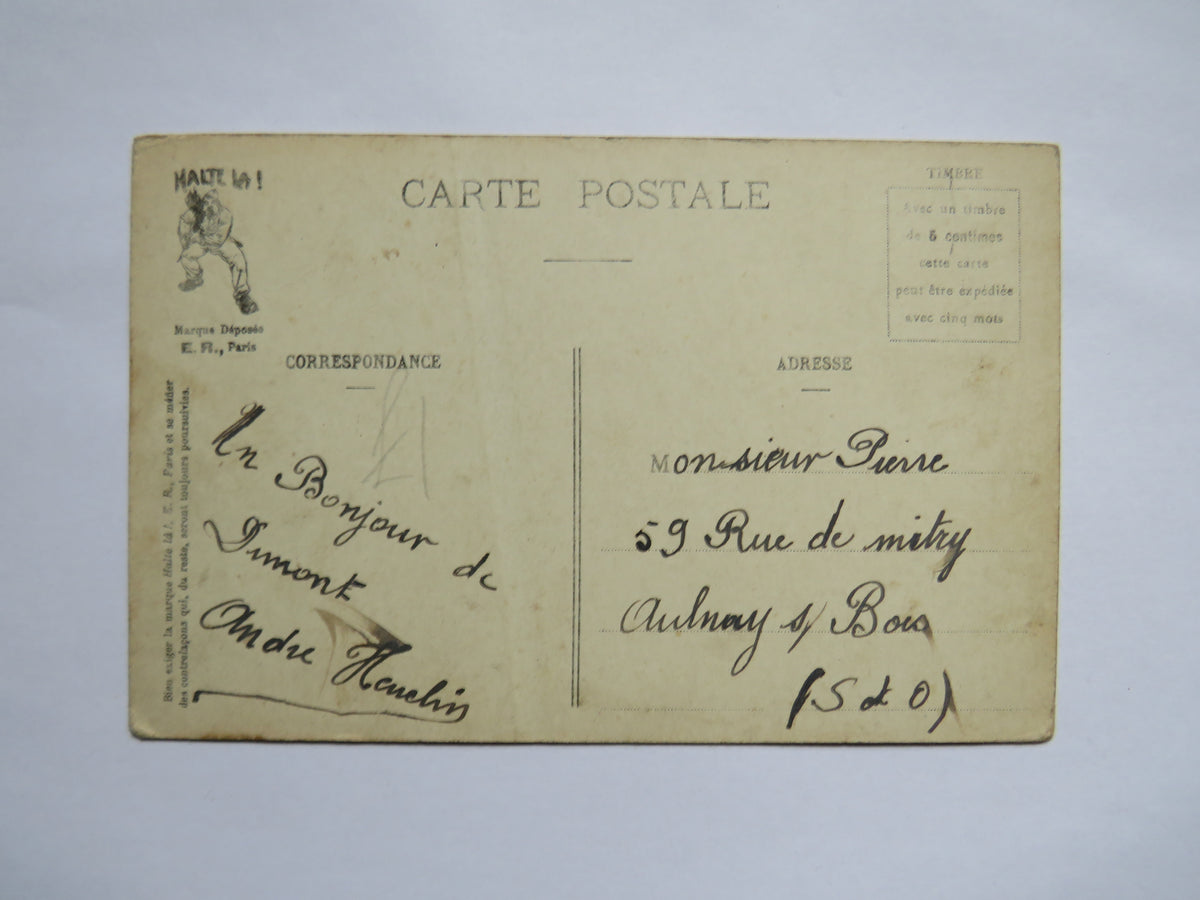 HALTE LA !
Marque Déposée
E. R., Paris
CARTE POSTALE
TIMBRE
Avec un timbre
de 5 centimes
cette carte
peut être expédiée
avec cinq mots
CORRESPONDANCE
Un Bonjour de
Dumont
Andre
Bien exiger la marque Halte là !, E. R., Paris et se méfier
des contrefaçons qui, du reste, seront toujours poursuivies.
ADRESSE
Monsieur Pierre
59 Rue de mitry
Aulnay s/ Bois
(S et O)